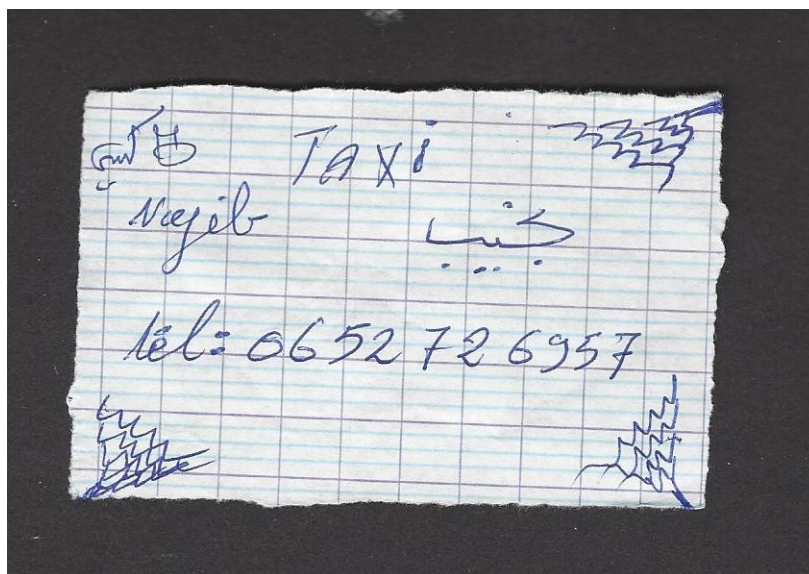 TAXi
Najib نجيب
tél: 06 52 72 6957